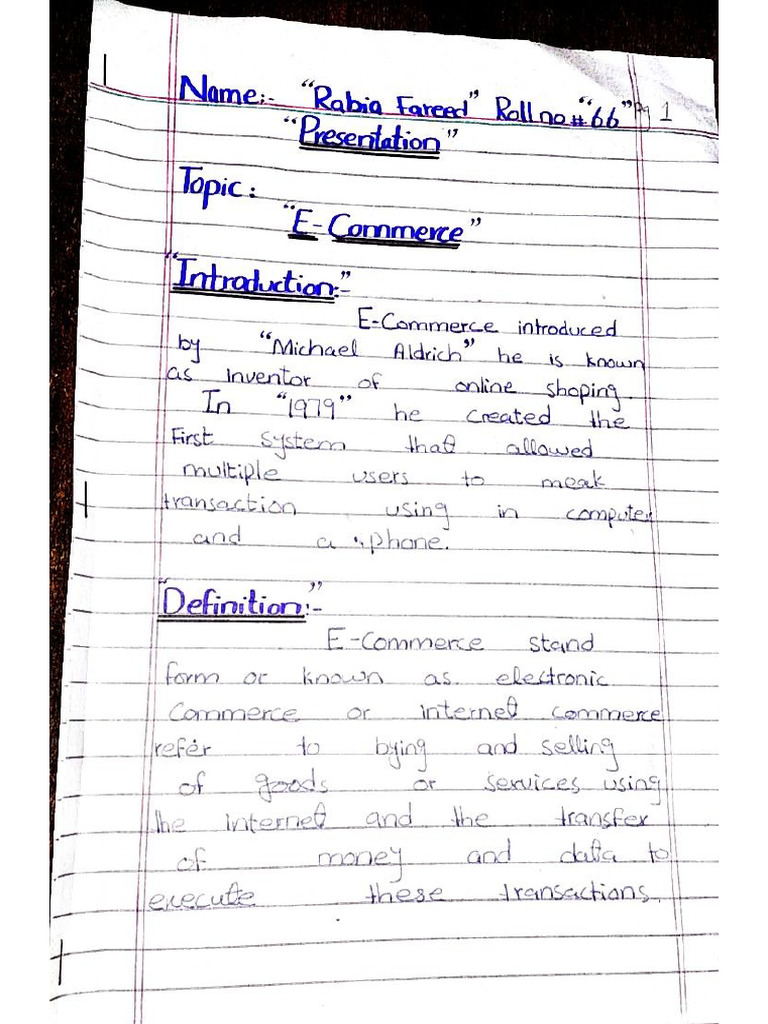 Name:- "Rabia Fareed" Roll no # "66" Pg 1
"Presentation"
Topic:
"E-Commerce"
"Introduction:-"
E-Commerce introduced
by "Michael Aldrich" he is known
as inventor of online shoping.
In "1979" he created the
First system that allowed
multiple users to meak
transaction using in computer
and a phone.
"Definition:-"
E-Commerce stand
form or known as electronic
Commerce or internet commerce
refer to bying and selling
of goods or services using
the internet and the transfer
of money and data to
execute these transactions.